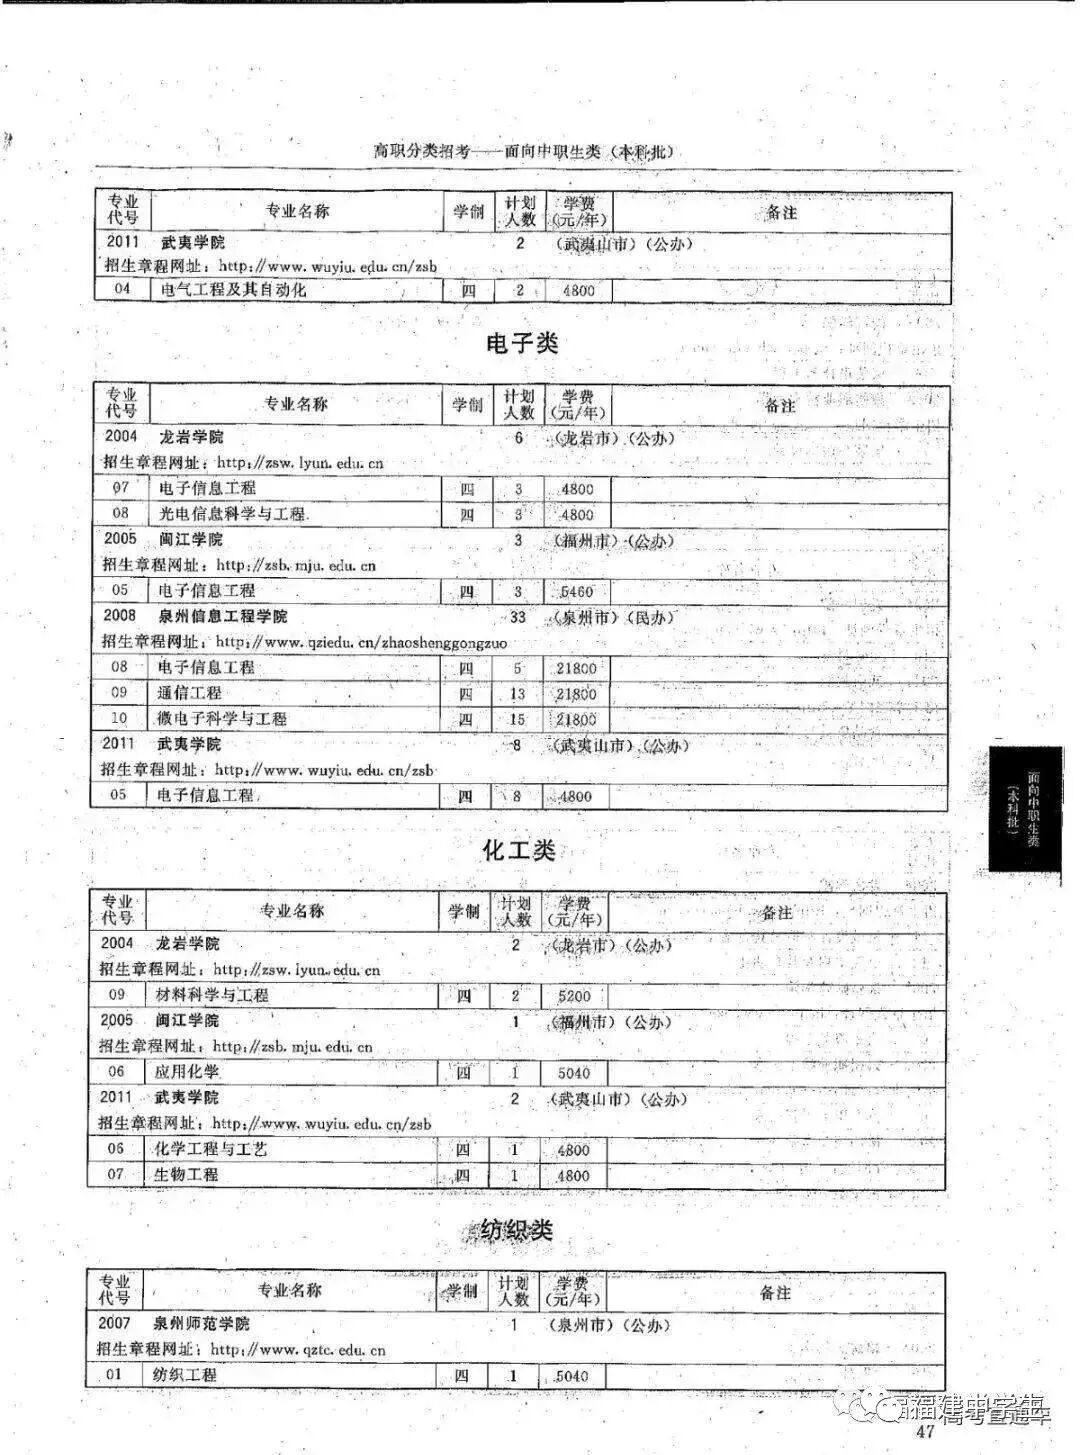 高职分类招考——面向中职生类（本科批）
专业代号 专业名称 学制 计划人数 学费（元/年） 备注
2011 武夷学院 2 （武夷山市）（公办）
招生章程网址：http://www.wuyiu.edu.cn/zsb
04 电气工程及其自动化 四 2 4800
电子类
专业代号 专业名称 学制 计划人数 学费（元/年） 备注
2004 龙岩学院 6 （龙岩市）（公办）
招生章程网址：http://zsw.lyun.edu.cn
07 电子信息工程 四 3 4800
08 光电信息科学与工程 四 3 4800
2005 闽江学院 3 （福州市）（公办）
招生章程网址：http://zsb.mju.edu.cn
05 电子信息工程 四 3 5460
2008 泉州信息工程学院 33 （泉州市）（民办）
招生章程网址：http://www.qziedu.cn/zhaoshenggongzuo
08 电子信息工程 四 5 21800
09 通信工程 四 13 21800
10 微电子科学与工程 四 15 21800
2011 武夷学院 8 （武夷山市）（公办）
招生章程网址：http://www.wuyiu.edu.cn/zsb
05 电子信息工程 四 8 4800
面向中职生类
（本科批）
化工类
专业代号 专业名称 学制 计划人数 学费（元/年） 备注
2004 龙岩学院 2 （龙岩市）（公办）
招生章程网址：http://zsw.lyun.edu.cn
09 材料科学与工程 四 2 5200
2005 闽江学院 1 （福州市）（公办）
招生章程网址：http://zsb.mju.edu.cn
06 应用化学 四 1 5040
2011 武夷学院 2 （武夷山市）（公办）
招生章程网址：http://www.wuyiu.edu.cn/zsb
06 化学工程与工艺 四 1 4800
07 生物工程 四 1 4800
纺织类
专业代号 专业名称 学制 计划人数 学费（元/年） 备注
2007 泉州师范学院 1 （泉州市）（公办）
招生章程网址：http://www.qztc.edu.cn
01 纺织工程 四 1 5040
高考直通车
47